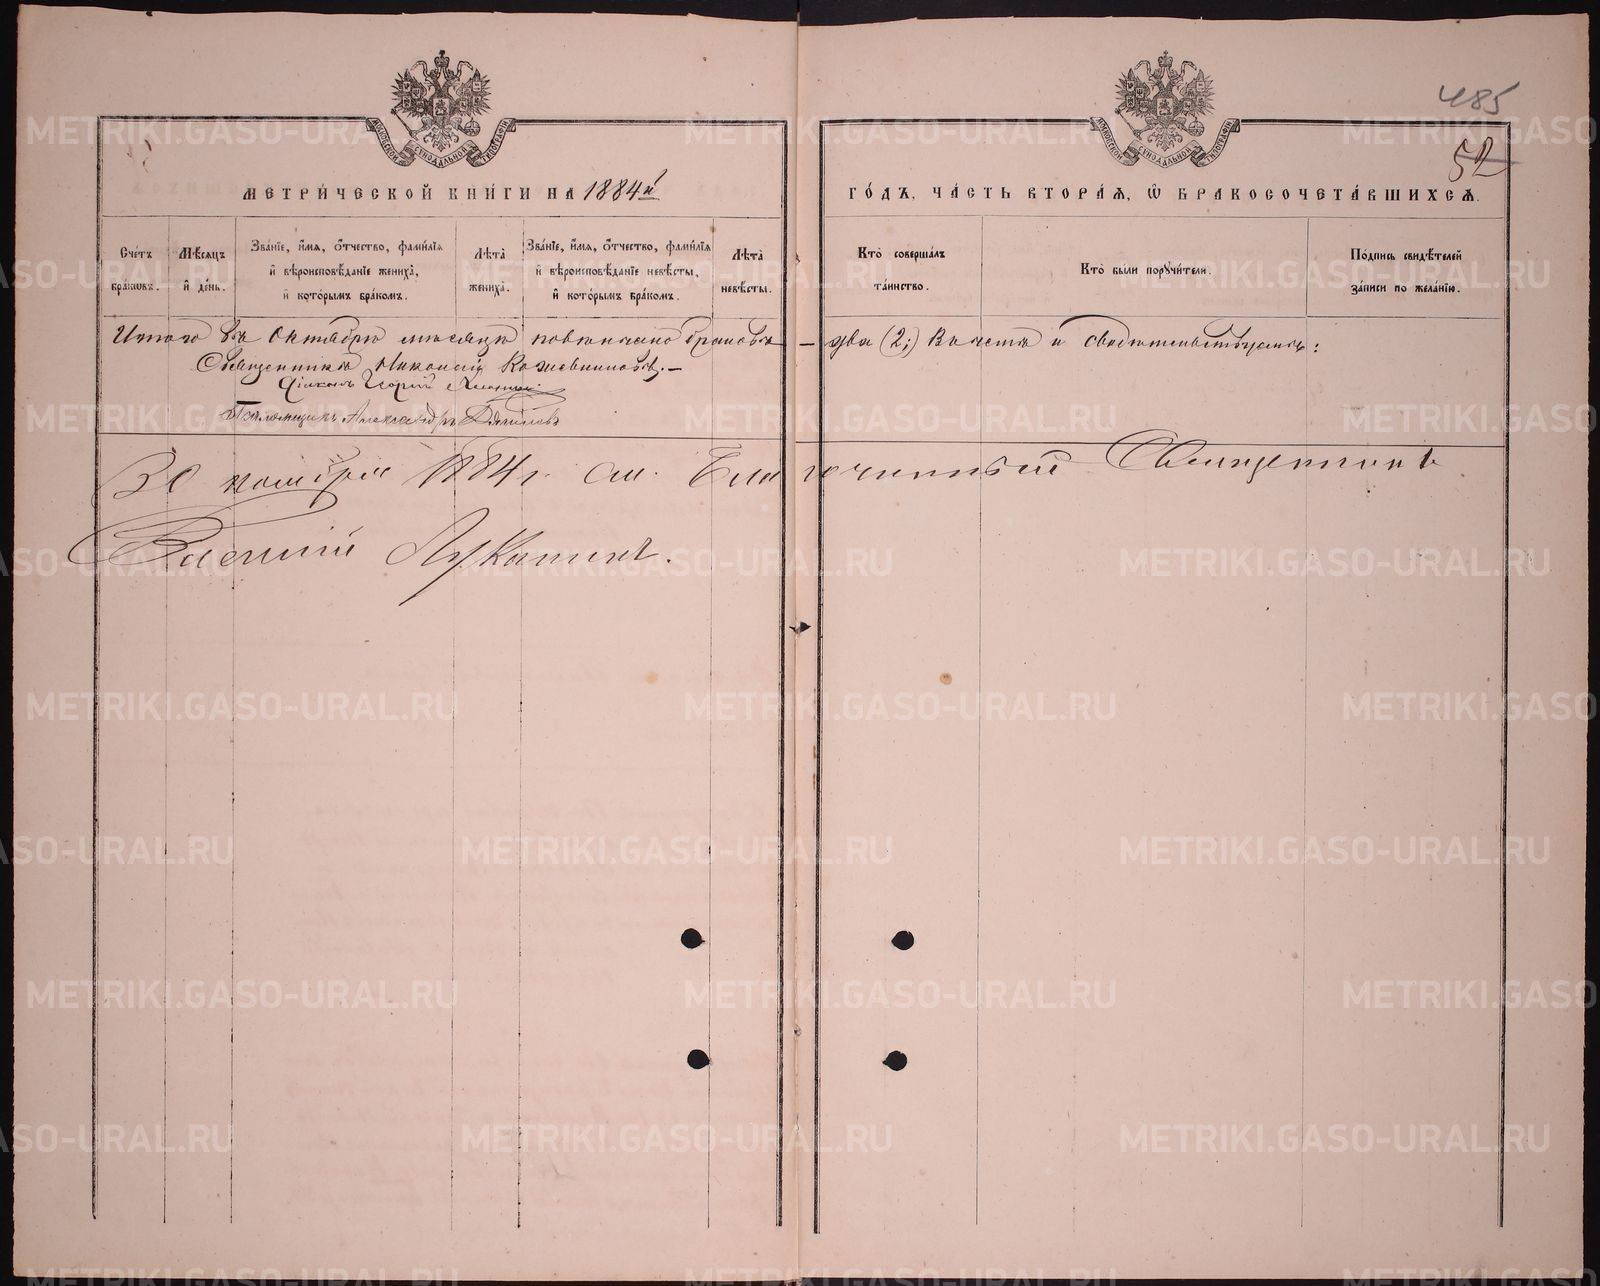 485
52
МОСКОВСКОЙ СѴНОДАЛЬНОЙ ТИПОГРАФІИ
МОСКОВСКОЙ СѴНОДАЛЬНОЙ ТИПОГРАФІИ
МЕТРИ́ЧЕСКОЙ КНИ́ГИ НА 1884й ГО́ДЪ, ЧА́СТЬ ВТОРА́Я, Ѡ БРАКОСОЧЕТА́ВШИХСЯ.
Сче́тъ бра́ковъ.
Мѣ́сяцъ и҆ де́нь.
Зва́нїе, и҆́мя, ѻ҆́тчество, фами́лїя и҆ вѣроисповѣ́данїе жениха̀, и҆ кото́рымъ бра́комъ.
Лѣ́та жениха̀.
Зва́нїе, и҆́мя, ѻ҆́тчество, фами́лїя и҆ вѣроисповѣ́данїе невѣ́сты, и҆ кото́рымъ бра́комъ.
Лѣ́та невѣ́сты.
Кто̀ соверша́лъ та́инство.
Кто̀ бы́ли поручи́тели.
По́дпись свидѣ́телей за́писи по жела́нїю.
Итого въ Октябрѣ мѣсяцѣ повѣнчано браковъ – два (2;) В. честь и свидѣтельствуемъ:
Священникъ Никола́й Кожевниковъ. –
Діаконъ
Псаломщикъ Александръ
30 ноября 1884 г. см. Благочинный Священникъ
Василій Лукании.
METRIKI.GASO-URAL.RU